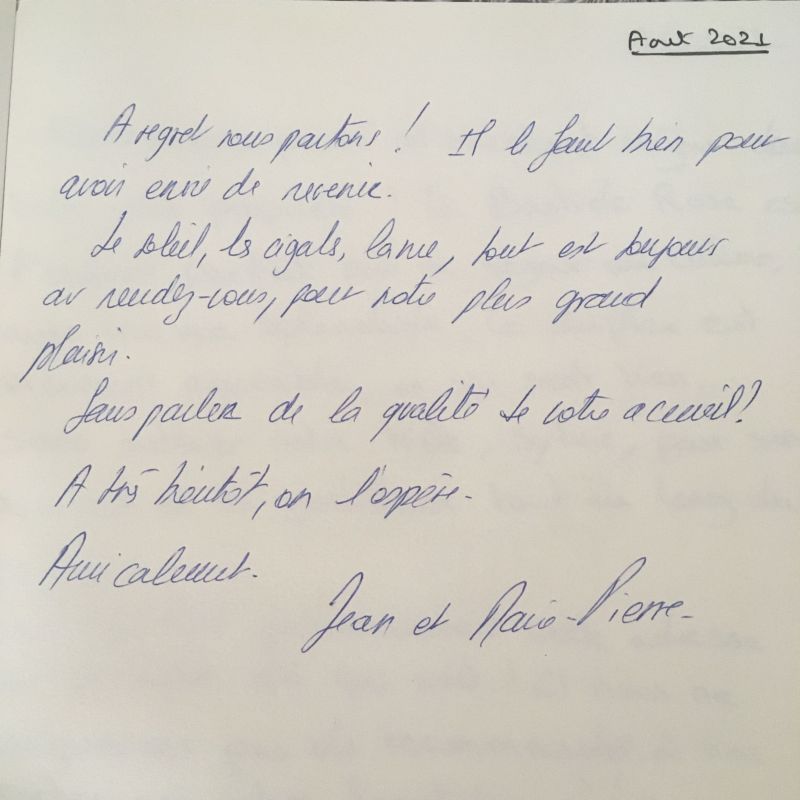 Aout 2021
A regret nous partons ! Il le faut bien pour
avoir envie de revenir.
Le soleil, les cigales, l'ane, tout est toujours
au rendez-vous, pour notre plus grand
plaisir.
Sans parler de la qualité de votre accueil !
A très bientôt, on l'espère.
Amicalement.
Jean et Marie-Pierre